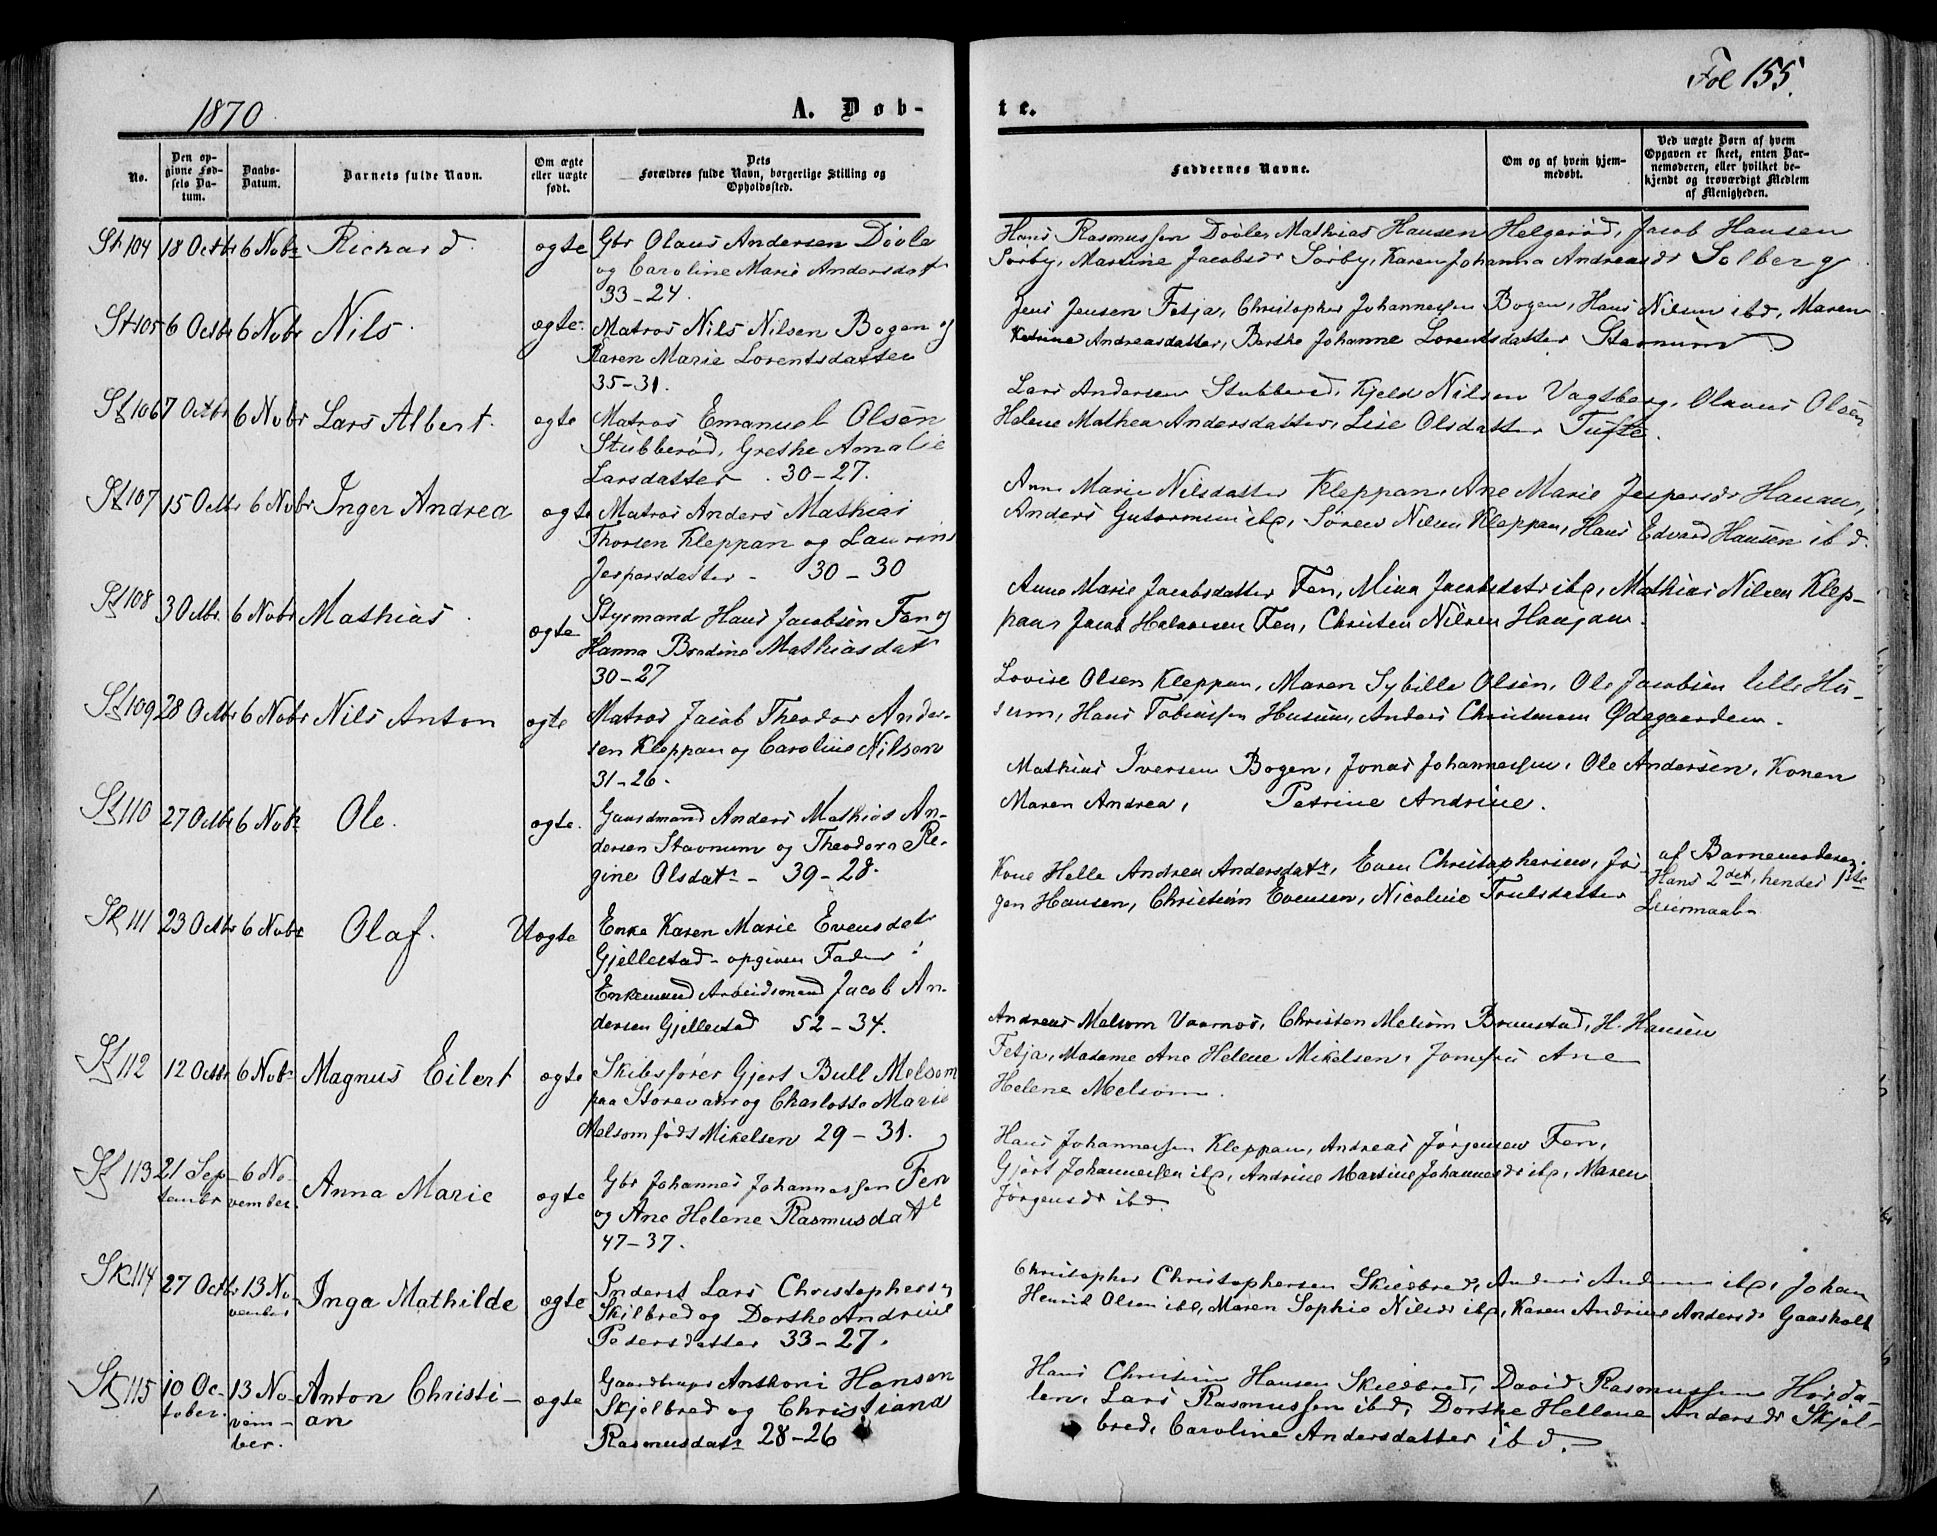 1870
A. Døb-
te.
Fol 155.
No.
Den op-
givne Fød-
sels Da-
tum.
Daabs-
Datum.
Barnets fulde Navn.
Om ægte
eller uægte
født.
Dets
Forældres fulde Navn, borgerlige Stilling og
Opholdssted.
Faddernes Navne.
Om og af hvem hjem-
medøbt.
Ved uægte Børn af hvem
Opgaven er skeet, enten Bar-
nemoderen, eller hvilket be-
kjendt og troværdigt Medlem
af Menigheden.
St 104 18 Octbr 6 Nobr Richard. ægte Gbr Olaus Andersen Døvle
og Caroline Marie Andersdatr
33-24.
Hans Rasmussen Døvle, Mathias Hansen Helgerød, Jacob Hansen
Sørby, Martine Jacobsdr Sørby, Karen Johanna Andreasdr Solberg
St 105 6 Octbr 6 Nobr Nils. ægte. Matros Nils Nilsen Bogen og
Karen Marie Lorentsdatter
35-31.
Jens Jensen Fetja, Christopher Johannessen Bogen, Hans Nilsen ibd, Maren
Katrine Andreasdatter, Berthe Johanne Lorentsdatter Stavnum
St 106 7 Octbr 6 Nobr Lars Albert. ægte Matros Emanuel Olsen
Stubberød, Grethe Amalie
Larsdatter. 30-27.
Lars Andersen Stubberød, Kjeld Nilsen Vagtsberg, Olavus Olsen
Helene Mathea Andersdatter, Lise Olsdatter Tufte.
St 107 15 Octbr 6 Nobr Inger Andrea ægte Matros Anders Mathias
Thorsen Kleppan og Laurine
Jespersdatter - 30-30
Anne Marie Nilsdatter Kleppan, Ane Marie Jespersdr Haugan,
Anders Gutormsen ibd, Søren Nilsen Kleppan, Hans Edvard Hansen ibd.
St 108 3 Octbr. 6 Nobr Mathias. ægte Styrmand Hans Jacobsen Fen og
Hanna Bredine Mathiasdatr
30-27
Anne Marie Jacobsdatter Fen, Mina Jacobsdatr ibd, Mathias Nilsen Klep-
pan, Jacob Halvorsen Fen, Christen Nilsen Haugan.
St 109 28 Octbr 6 Nobr Nils Anton ægte Matros Jacob Theodor Ander-
sen Kleppan og Caroline Nilsen
31-26.
Lovise Olsen Kleppan, Maren Sybille Olsen, Ole Jacobsen lille Hu-
sum, Hans Tobiassen Husum, Anders Christensen Ødegaarden.
St 110 27 Octbr 6 Nobr Ole. ægte. Gaardmand Anders Mathias An-
dersen Stavnum og Theodora Re-
gine Olsdatr - 39-28.
Mathias Iversen Bogen, Jonas Johannessen, Ole Andersen, Konen
Maren Andrea, Petrine Andrine.
Sk 111 23 Octbr 6 Nobr Olaf. Uægte Enke Karen Marie Evensdatr
Gjellestad - opgiven Fader:
Enkemand Arbeidsmand Jacob An-
dersen Gjellestad 52-34.
Kone Helle Andrea Andersdatr, Even Christophersen, Jør-
gen Hansen, Christian Evensen, Nicoline Trulsdatter
af Barnemoderen.
Hans 2det, hendes 1ste
Leiermaal.
St 112 12 Octbr 6 Nobr Magnus Eilert ægte Skibsfører Gjert Bull Melsom
paa Storevahr og Charlotte Marie
Melsom født Mikelsen 29-31.
Andreas Melsom Vaarnæs, Christen Melsom Brunstad, H. Hansen
Fetja, Madame Ane Helene Mikelsen, Jomfru Ane
Helene Melsom.
St 113 21 Sep- 6 No-
tember vember. Anna Marie ægte Gbr Johannes Johannessen Fen
og Ane Helene Rasmusdatr
47-37.
Hans Johannessen Kleppan, Andreas Jørgensen Fen,
Gjört Johannessen ibd, Andrine Martine Johannesdr ibd, Maren
Jørgensdr ibd.
Sk 114 27 Octbr 13 No-
vember Inga Mathilde ægte Inderst Lars Christophersen
Skilbred og Dorthe Andrine
Pedersdatter 33-27.
Christopher Christophersen Skilbred, Anders Andersen ibd, Johan
Henrik Olsen ibd, Maren Sophie Nilsdr ibd, Karen Andrine Andersdr Gaasholt
Sk 115 10 Oc- 13 No-
tober. vem-
ber. Anton Christi-
an ægte Gaardbruger Anthoni Hansen
Skjelbred og Christiana
Rasmusdatr 28-26
Hans Christian Hansen Skilbred, David Rasmussen Hørda-
len, Lars Rasmussen ibd, Dorthe Hellene Andersdr Skjel-
bred, Caroline Andersdatter ibd.